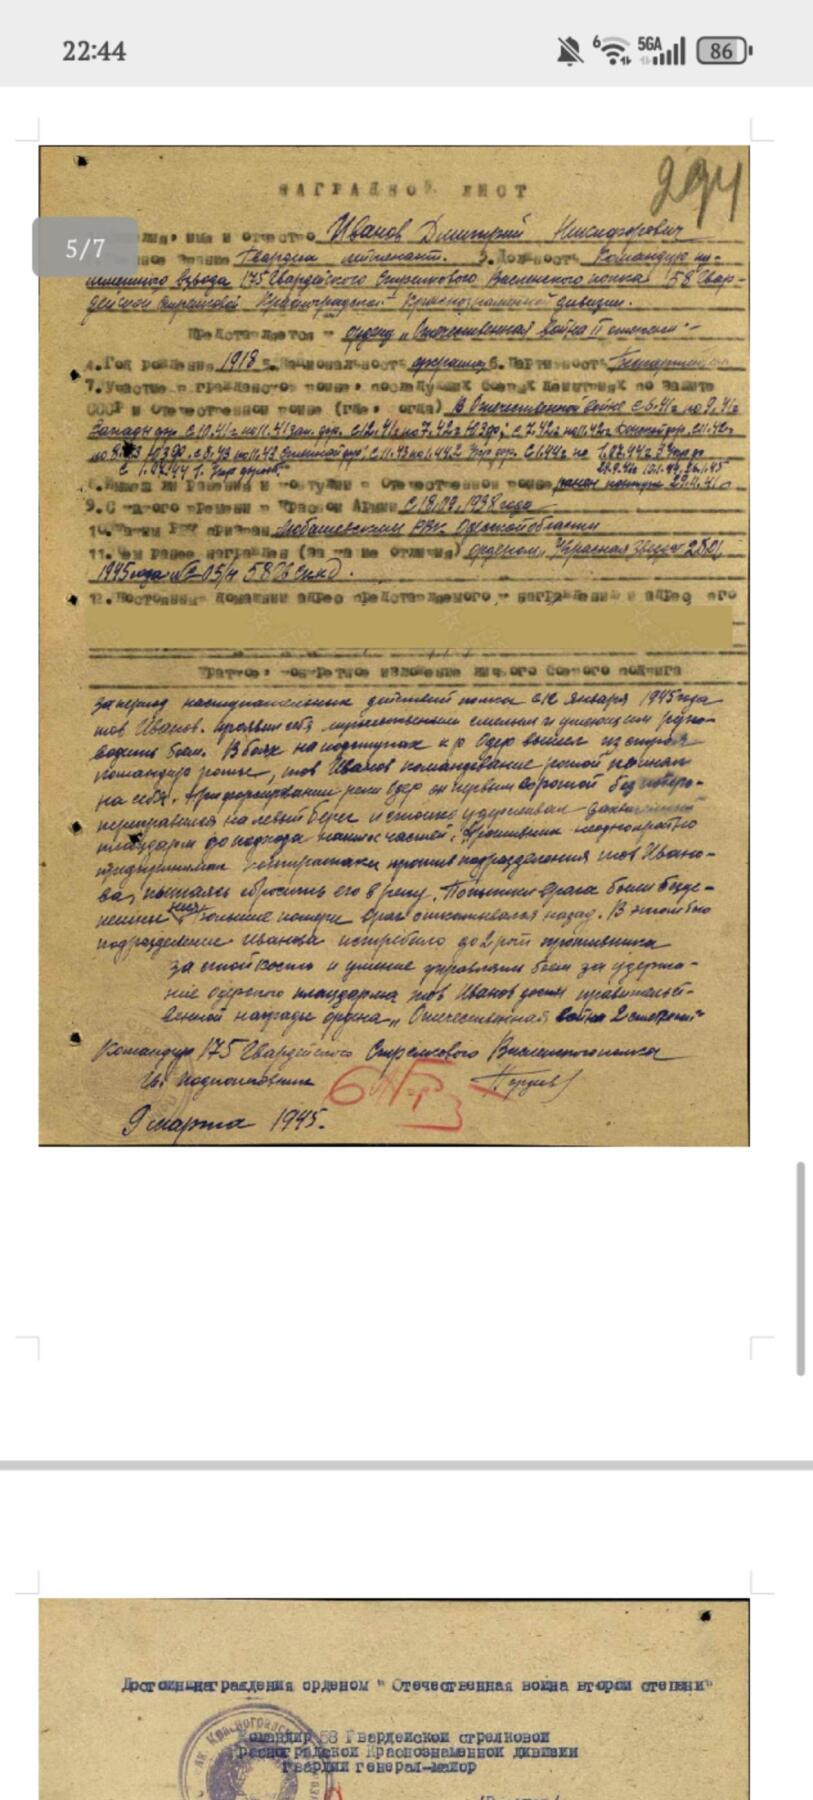 22:44
6 5GA 86
НАГРАДНОЙ ЛИСТ
294
5/7
имя и отчество Иванов Дмитрий Никифорович
звание Гвардии лейтенант. 3. Должность Командир пу-
леметного взвода 175 Гвардейского Стрелкового Висленского полка 58 Гвар-
дейской Стрелковой Красноградской Краснознаменной дивизии.
Представляется к ордену „Отечественная война II степени"
4. Год рождения 1918 5. Национальность 6. Партийность
7. Участие в гражданской войне, последующих боевых действиях по защите
СССР и отечественной войне (где, когда) В Отечественной войне с 6.41г по 9.41г
8. Имеет ли ранения и контузии в Отечественной войне ранен
9. С какого времени в Красной Армии с 18.09.1938 года
10. Каким РВК призван Любашевским РВК Одесской области
11. Чем ранее награжден (за какие отличия) орденом „Красная Звезда"
1945 года
12. Постоянный домашний адрес представляемого к награждению и адрес его
Краткое, конкретное изложение личного боевого подвига
За период наступательных действий полка с 12 января 1945 года
тов Иванов. проявил себя мужественным смелым и умеющим руко-
водить боем. В боях на подступах к р Одер вышел из строя
командир роты, тов Иванов командование ротой принял
на себя. При форсировании реки Одер он первым с ротой без потерь
переправился на левый берег и стойко удерживал захваченный
плацдарм до подхода наших частей. Противник неоднократно
предпринимал контратаки против подразделения тов Ивано-
ва, пытаясь сбросить его в реку. Попытки врага были безус-
пешны неся большие потери враг откатывался назад. В этом бою
подразделение Иванова истребило до 2 рот противника
За стойкость и умение управлять боем за удержа-
ние одерского плацдарма тов Иванов достоин правительст-
венной награды ордена „Отечественная война 2 степени"
Командир 175 Гвардейского Стрелкового Висленского полка
Гв. подполковник
9 марта 1945.
Достоин награждения орденом "Отечественная война второй степени"
Командир 58 Гвардейской стрелковой
Красноградской Краснознаменной дивизии
гвардии генерал-майор